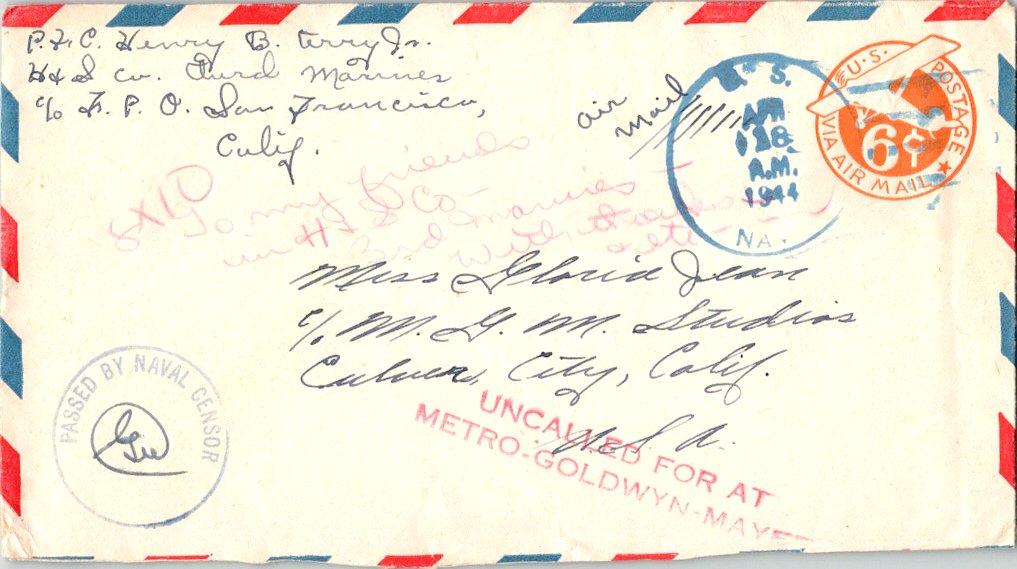 P.F.C. Henry B. Terry Jr.
H & S Co. Third Marines
c/o F. P. O. San Francisco,
Calif.
air
mail
U. S.
APR
18
A.M.
1944
NA
U.S. POSTAGE
6¢
VIA AIR MAIL
8X10
To my friends
in H & S Co
3rd Marines
With thanks
Miss Gloria Jean
c/o M. G. M. Studios
Culver City, Calif.
U S A.
PASSED BY NAVAL CENSOR
UNCALLED FOR AT
METRO-GOLDWYN-MAYE